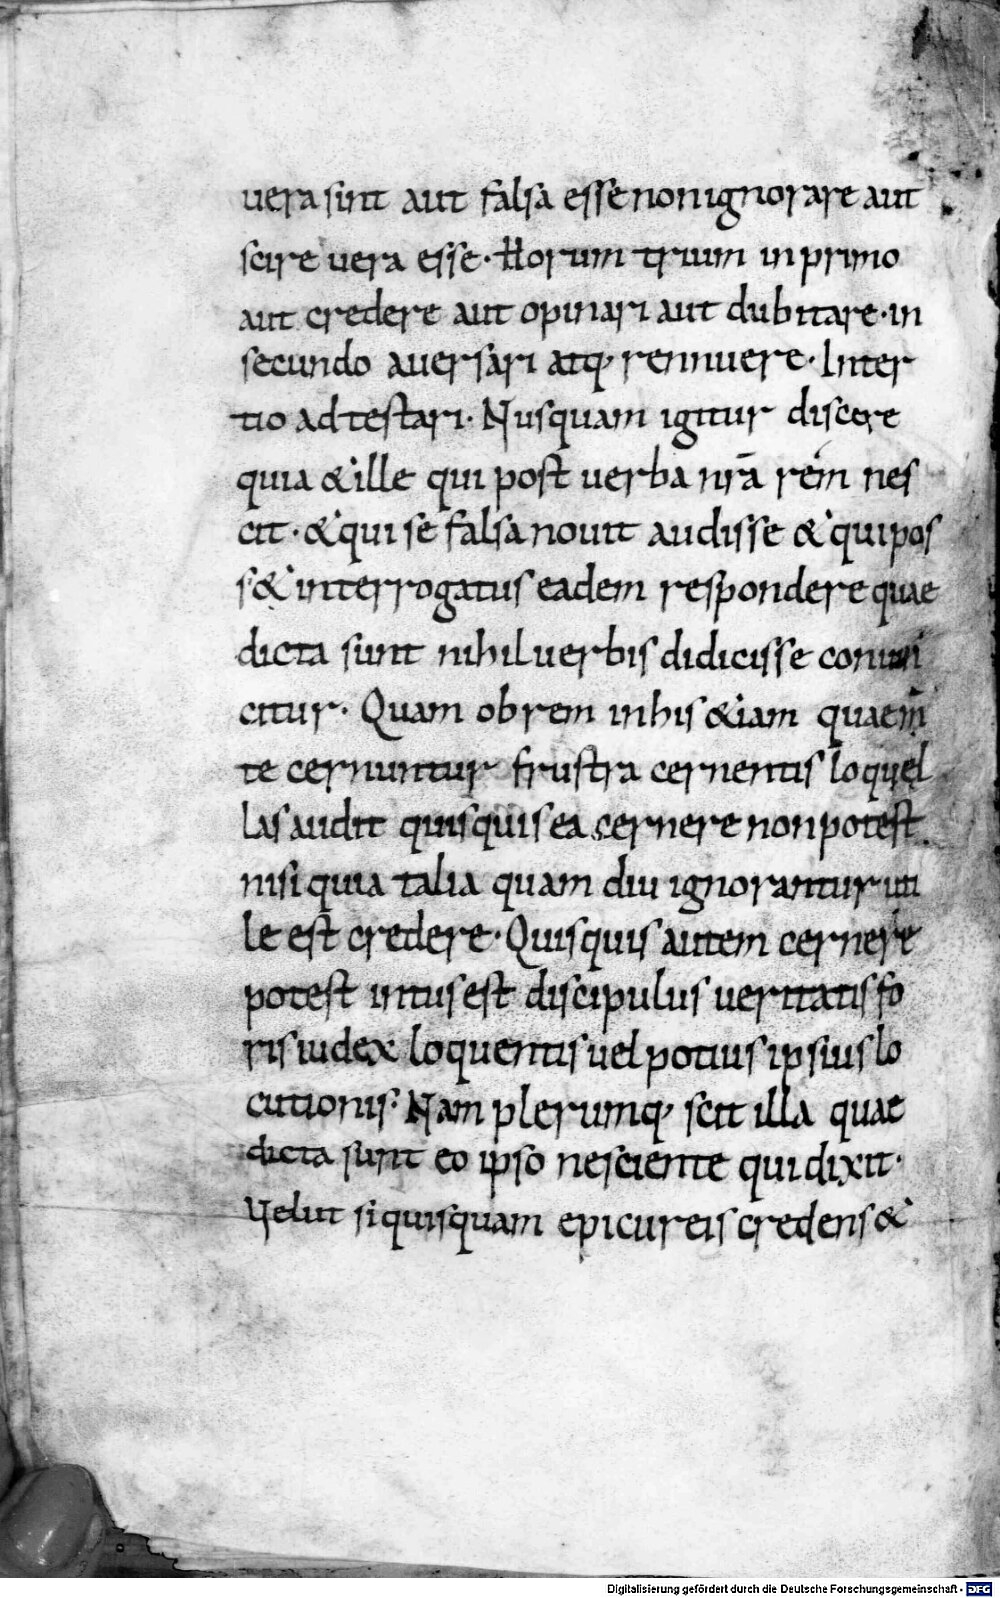 uera sint aut falsa esse non ignorare aut
scire uera esse· Horum trium in primo
aut credere aut opinari aut dubitare· in
secundo auersari atq; rennuere· In ter
tio ad testari· Nusquam igitur discere
quia & ille qui post uerba nr̄a rem nes
cit· & qui se falsa nouit audisse & qui pos
s& interrogatus eadem respondere quae
dicta sunt nihil uerbis didicisse conuin
citur· Quam obrem in his &iam quae m̄
te cernuntur frustra cernentis loquel
las audit quisquis ea cernere non potest
nisi quia talia quam diu ignorantur uti
le est credere· Quisquis autem cernere
potest intus est discipulus ueritatis fo
ris iudex loquentis uel potius ipsius lo
cutionis· Nam plerumq; scit illa quae
dicta sunt eo ipso nesciente qui dixit·
Uelut si quisquam epicureis credens &
Digitalisierung gefördert durch die Deutsche Forschungsgemeinschaft - DFG